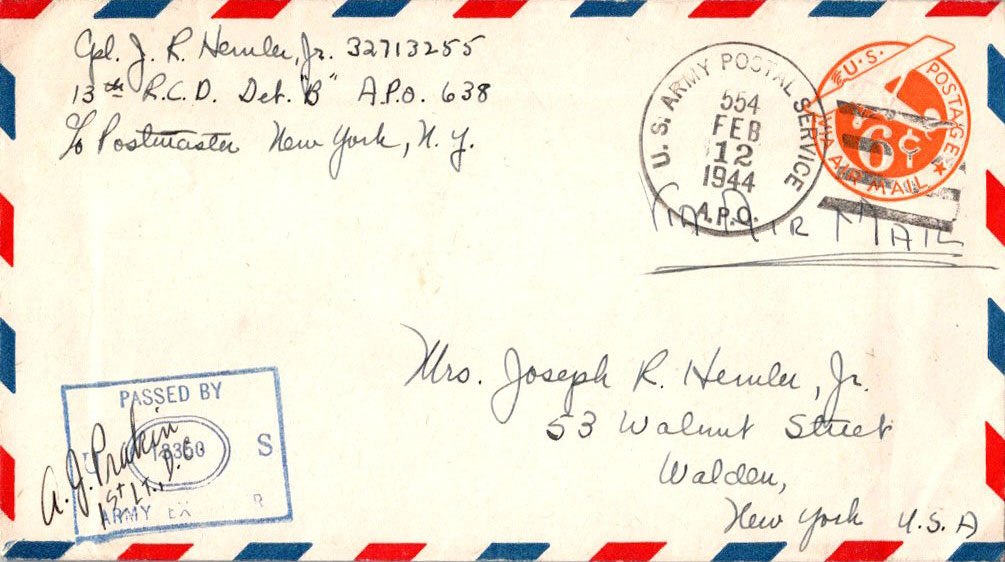 Cpl. J. R. Hemler, Jr. 32713255
13th R.C.D. Det. "B" A.P.O. 638
c/o Postmaster New York, N.Y.
U.S. ARMY POSTAL SERVICE
554
FEB
12
1944
A.P.O.
U.S. POSTAGE
6¢
VIA AIR MAIL
VIA AIR MAIL
Mrs. Joseph R. Hemler, Jr.
53 Walnut Street
Walden,
New York U.S.A
PASSED BY
S
A. J.
1st LT., D.C.
ARMY